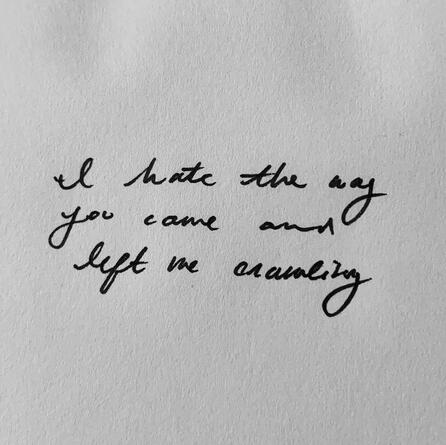 I hate the way
you came and
left me crawling